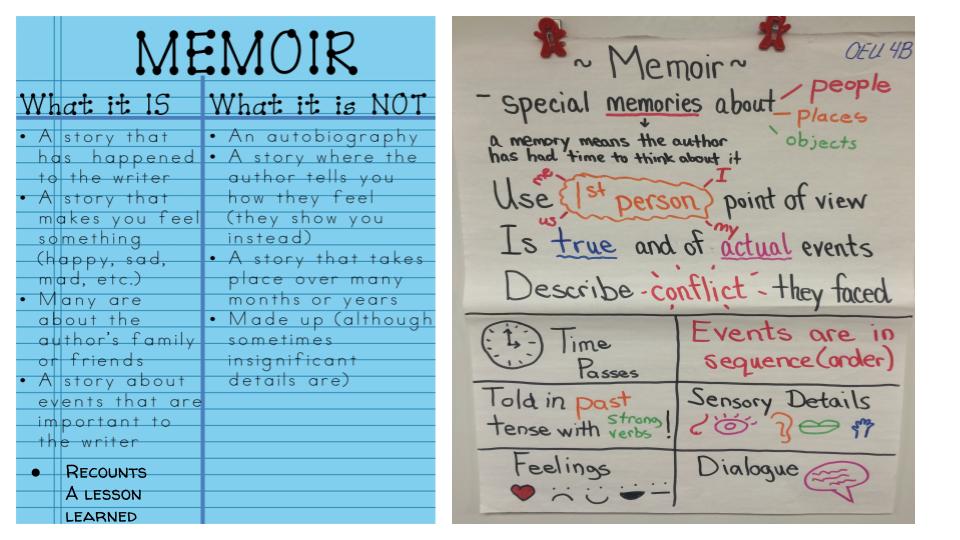 MEMOIR
What it IS
• A story that
has happened
to the writer
• A story that
makes you feel
something
(happy, sad,
mad, etc.)
• Many are
about the
author's family
or friends
• A story about
events that are
important to
the writer
• RECOUNTS
A LESSON
LEARNED
What it is NOT
• An autobiography
• A story where the
author tells you
how they feel
(they show you
instead)
• A story that takes
place over many
months or years
• Made up (although
sometimes
insignificant
details are)
OEU 4B
~ Memoir ~
- special memories about
people
places
objects
a memory means the author
has had time to think about it
me
I
Use 1st person point of view
us
my
Is true and of actual events
Describe conflict they faced
Time
Passes
Events are in
sequence (order)
Told in past
tense with strong verbs!
Sensory Details
Feelings
Dialogue